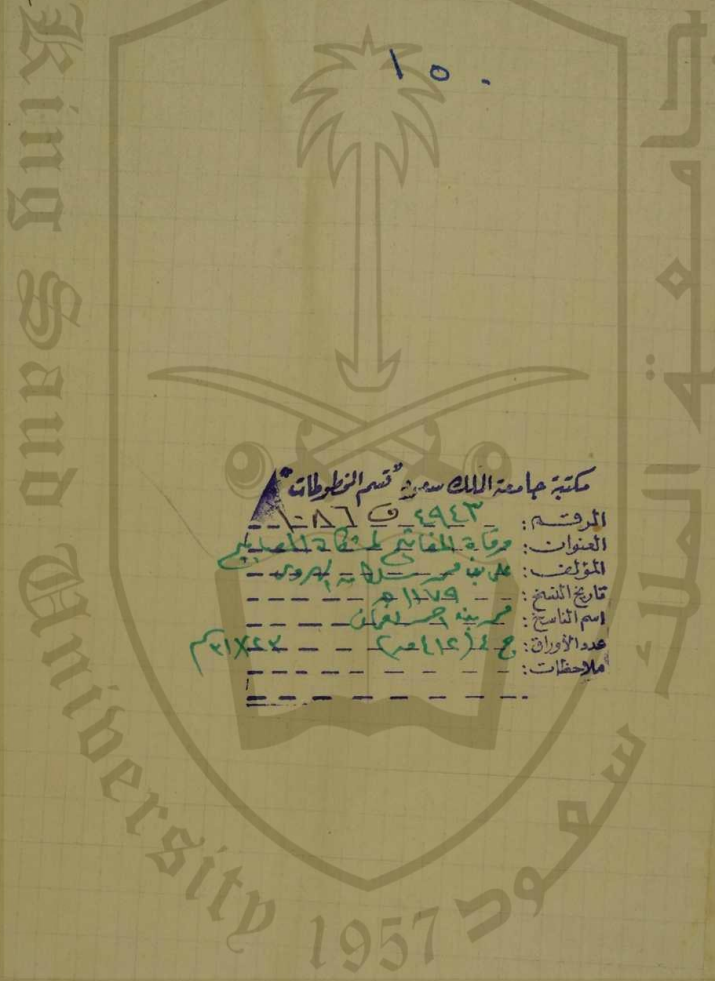 ١٥٠
مكتبة جامعة الملك سعود "قسم المخطوطات"
الرقم: ٤٩٤٣ ف ١٠٨٦
العنوان: مرقاة المفاتيح لمشكاة المصابيح
المؤلف: علي بن محمد سلطان الهروي
تاريخ النسخ: ١١٧٩ هـ
اسم الناسخ: محمد بن
عدد الأوراق: ج ٤ (٤١٢ ٣١X٢٣ سم
ملاحظات:
King Saud University 1957
جامعة الملك سعود